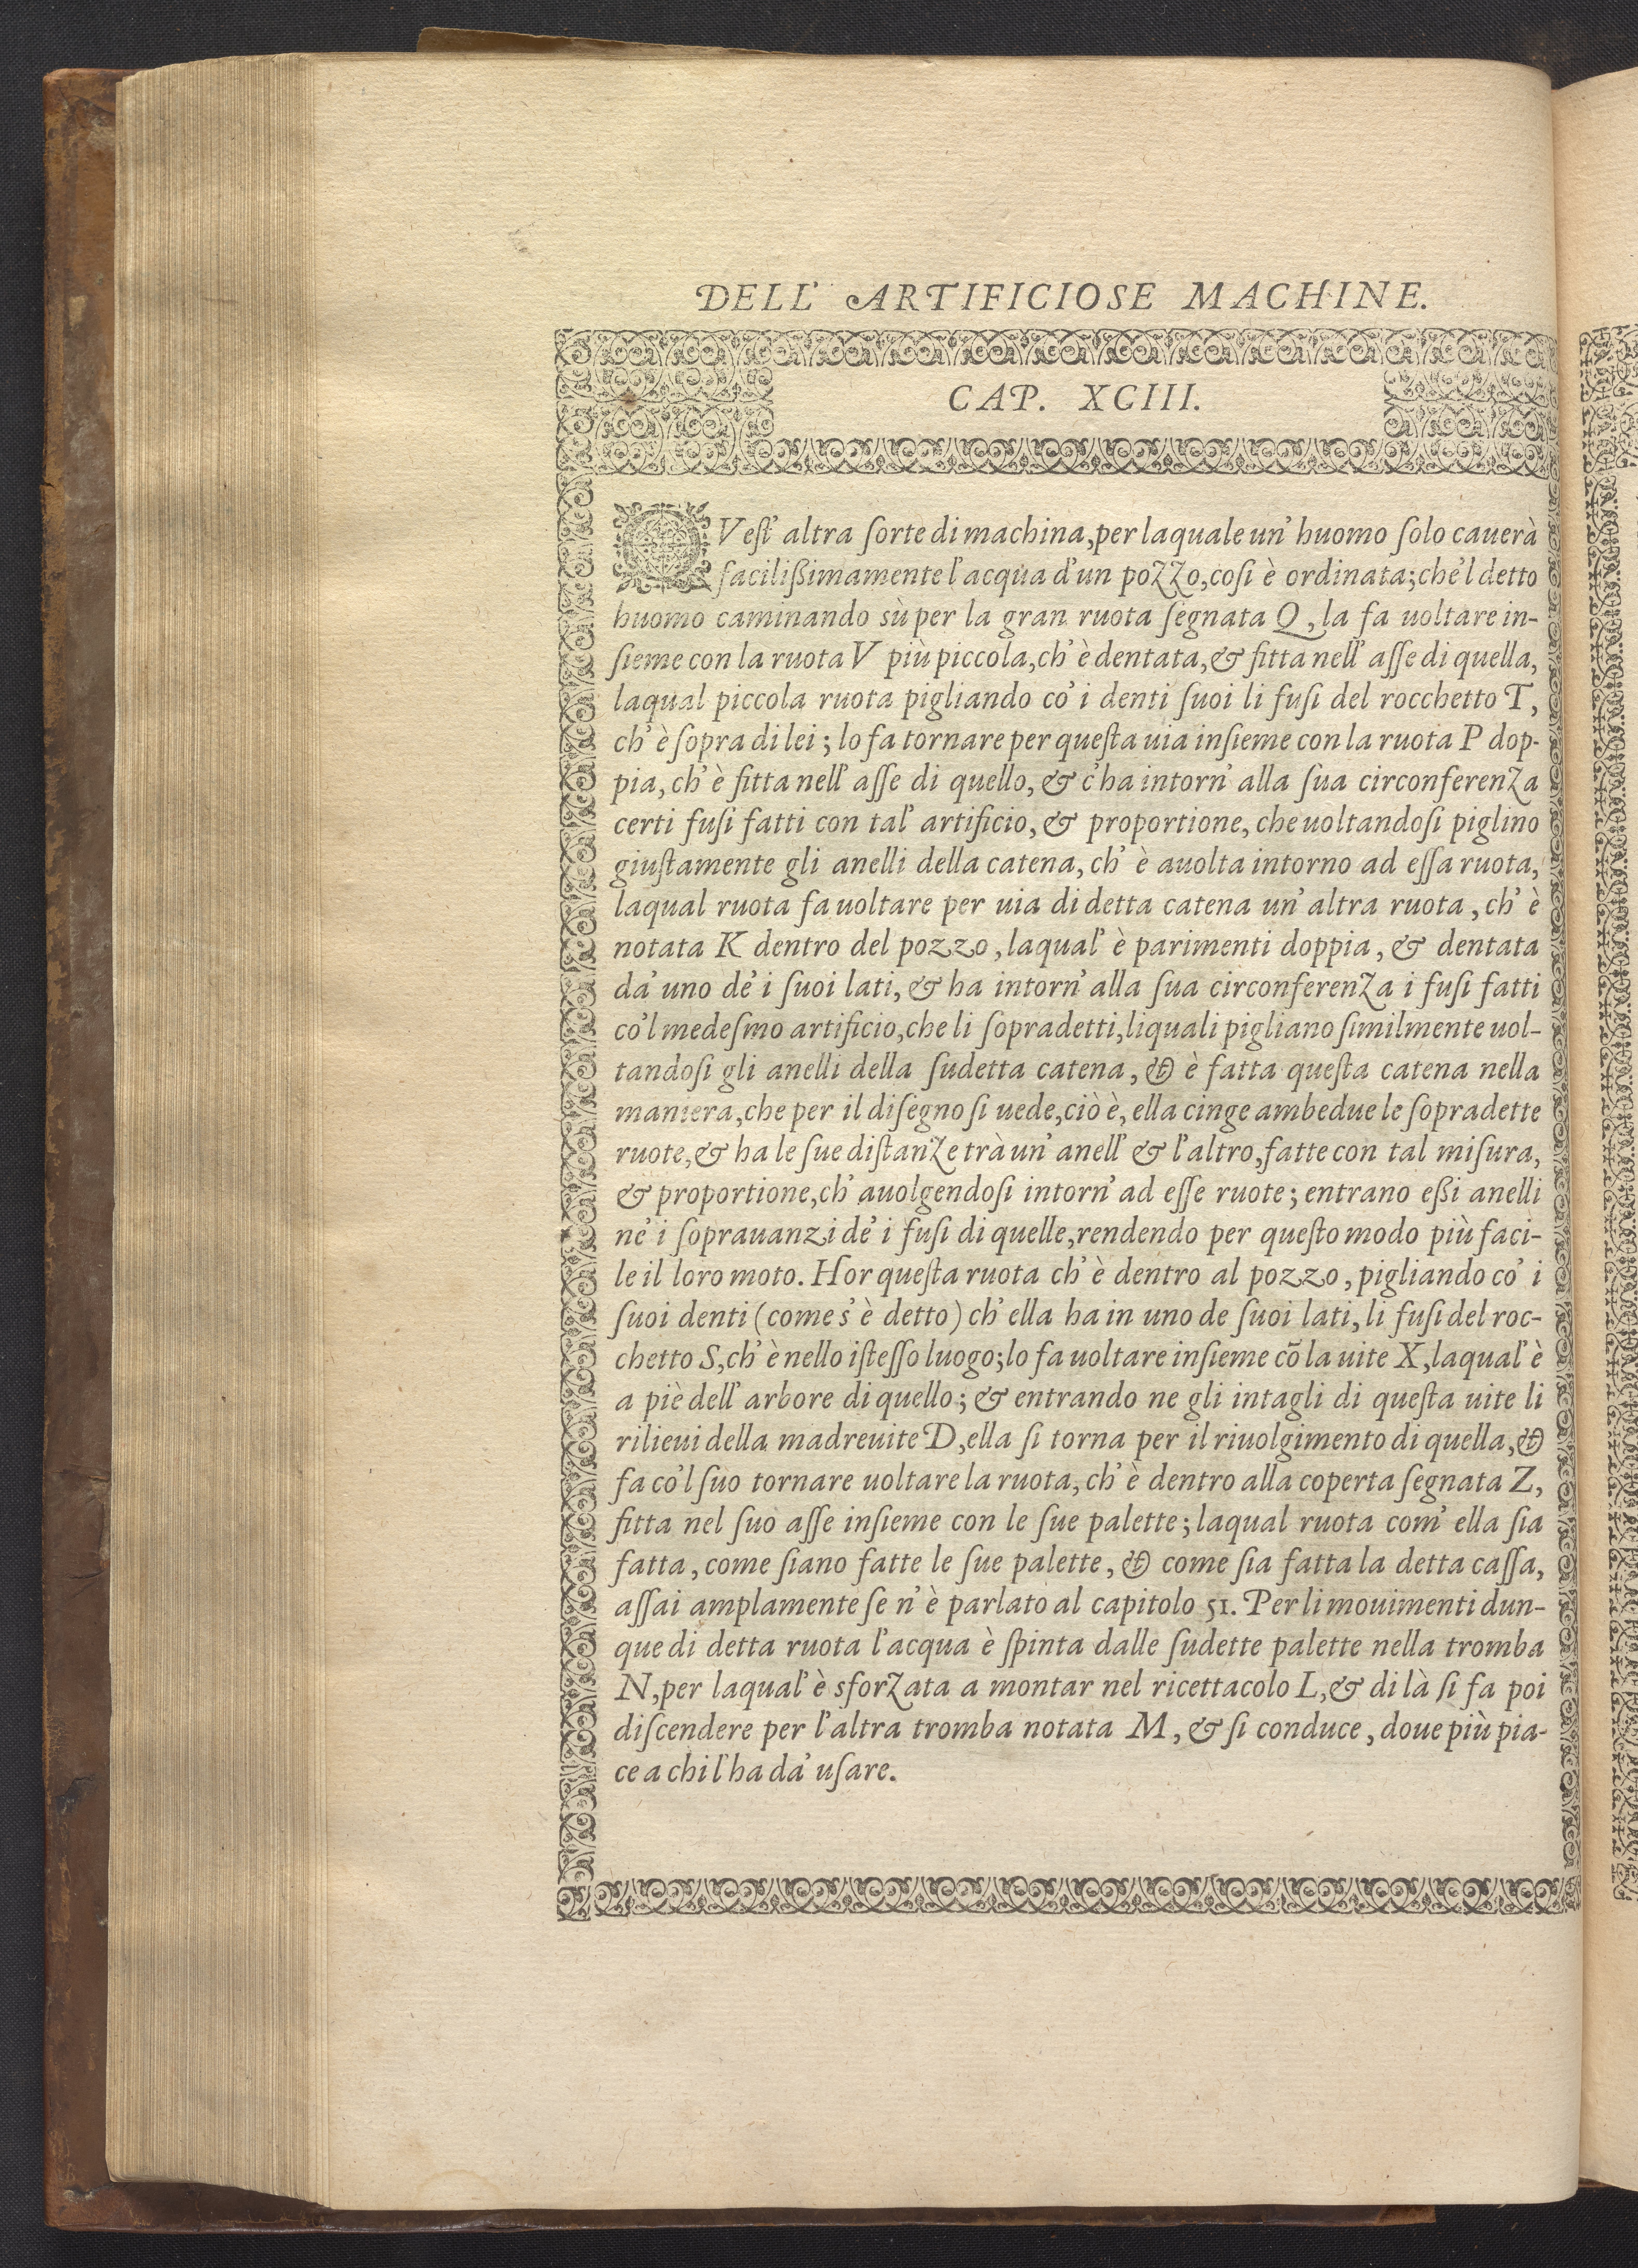 DELL' ARTIFICIOSE MACHINE.
CAP. XCIII.
QVest' altra sorte di machina, per laquale un' huomo solo cauerà
facilißimamente l'acqua d'un pozzo, cosi è ordinata; che'l detto
huomo caminando sù per la gran ruota segnata Q, la fa uoltare in-
sieme con la ruota V più piccola, ch' è dentata, & fitta nell' asse di quella,
laqual piccola ruota pigliando co' i denti suoi li fusi del rocchetto T,
ch' è sopra di lei; lo fa tornare per questa uia insieme con la ruota P dop-
pia, ch' è fitta nell' asse di quello, & c'ha intorn' alla sua circonferenza
certi fusi fatti con tal' artificio, & proportione, che uoltandosi piglino
giustamente gli anelli della catena, ch' è auolta intorno ad essa ruota,
laqual ruota fa uoltare per uia di detta catena un' altra ruota, ch' è
notata K dentro del pozzo, laqual' è parimenti doppia, & dentata
da' uno de' i suoi lati, & ha intorn' alla sua circonferenza i fusi fatti
co'l medesmo artificio, che li sopradetti, liquali pigliano similmente uol-
tandosi gli anelli della sudetta catena, & è fatta questa catena nella
maniera, che per il disegno si uede, ciò è, ella cinge ambedue le sopradette
ruote, & ha le sue distanze trà un' anell' & l'altro, fatte con tal misura,
& proportione, ch' auolgendosi intorn' ad esse ruote; entrano eßi anelli
ne' i soprauanzi de' i fusi di quelle, rendendo per questo modo più faci-
le il loro moto. Hor questa ruota ch' è dentro al pozzo, pigliando co' i
suoi denti (come s' è detto) ch' ella ha in uno de suoi lati, li fusi del roc-
chetto S, ch' è nello istesso luogo; lo fa uoltare insieme cõ la uite X, laqual' è
a piè dell' arbore di quello; & entrando ne gli intagli di questa uite li
rilieui della madreuite D, ella si torna per il riuolgimento di quella, &
fa co'l suo tornare uoltare la ruota, ch' è dentro alla coperta segnata Z,
fitta nel suo asse insieme con le sue palette; laqual ruota com' ella sia
fatta, come siano fatte le sue palette, & come sia fatta la detta cassa,
assai amplamente se n' è parlato al capitolo 51. Per li mouimenti dun-
que di detta ruota l'acqua è spinta dalle sudette palette nella tromba
N, per laqual' è sforzata a montar nel ricettacolo L, & di là si fa poi
discendere per l'altra tromba notata M, & si conduce, doue più pia-
ce a chi l'ha da' usare.